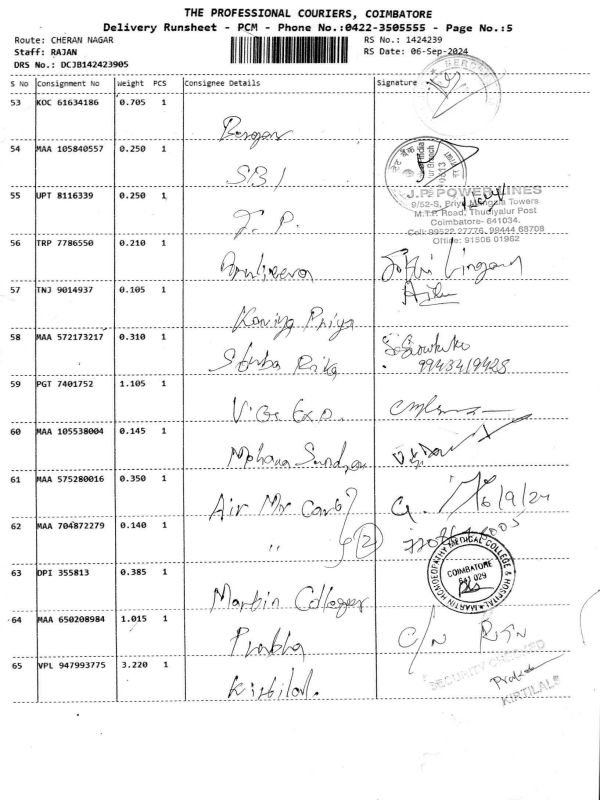 THE PROFESSIONAL COURIERS, COIMBATORE
Delivery Runsheet - PCM - Phone No.:0422-3505555 - Page No.:5
Route: CHERAN NAGAR
RS No.: 1424239
Staff: RAJAN
RS Date: 06-Sep-2024
DRS No.: DCJB142423905
S No Consignment No Weight PCS Consignee Details Signature
53 KOC 61634186 0.705 1
54 MAA 105840557 0.250 1
SBI
55 UPT 8116339 0.250 1
J. P.
J.P. POWER LINES
9/52-S, Priya Mangala Towers
M.T.P. Road, Thudiyalur Post
Coimbatore- 641034.
Cell: 89522 27776, 98444 68708
Office: 91506 01962
56 TRP 7786550 0.210 1
57 TNJ 9014937 0.105 1
Kaniya Priya
58 MAA 572173217 0.310 1
9943419428
59 PGT 7401752 1.105 1
60 MAA 105538004 0.145 1
Mohana
61 MAA 575280016 0.350 1
Air
6/9/24
62 MAA 704872279 0.140 1
" 2
63 DPI 355813 0.385 1
Martin College
MARTIN HOMOEOPATHY MEDICAL COLLEGE & HOSPITAL
COIMBATORE
641 029
64 MAA 650208984 1.015 1
Prabha
C/N RTN
65 VPL 947993775 3.220 1
Kirtilal.
SECURITY CHECKED
KIRTILALS